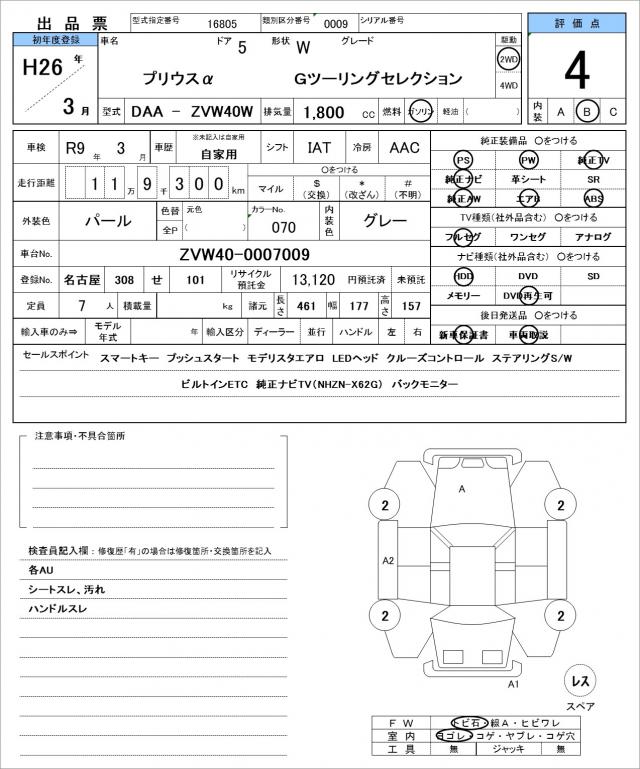 出品票 型式指定番号 16805 類別区分番号 0009 シリアル番号 評価点
初年度登録 車名 ドア 5 形状 W グレード 駆動
H26 年 3 月
プリウスα Gツーリングセレクション 2WD 4WD
型式 DAA - ZVW40W 排気量 1,800 cc 燃料 ガソリン 軽油 ( )
4
内装 A B C
車検 R9 年 3 月 車歴 ※未記入は自家用 自家用 シフト IAT 冷房 AAC
走行距離 11 万 9 千 300 km ○をつける マイル $ (交換) * (改ざん) # (不明)
外装色 パール 色替 元色 全P ( ) カラーNo. 070 内装色 グレー
車台No. ZVW40-0007009
登録No. 名古屋 308 せ 101 リサイクル預託金 13,120 円預託済 未預託
定員 7 人 積載量 kg 諸元 長さ 461 幅 177 高さ 157
輸入車のみ⇒ モデル年式 年 輸入区分 ディーラー 並行 ハンドル 左 右
純正装備品 ○をつける
PS PW 純正TV
純正ナビ 革シート SR
純正AW エアB ABS
TV種類(社外品含む) ○をつける
フルセグ ワンセグ アナログ
ナビ種類(社外品含む) ○をつける
HDD DVD SD
メモリー DVD再生可
後日発送品 ○をつける
新車保証書 車両取説
セールスポイント スマートキー プッシュスタート モデリスタエアロ LEDヘッド クルーズコントロール ステアリングS/W
ビルトインETC 純正ナビTV(NHZN-X62G) バックモニター
注意事項・不具合箇所
検査員記入欄：修復歴「有」の場合は修復箇所・交換箇所を記入
各AU
シートスレ、汚れ
ハンドルスレ
A
2 2
A2
2 2
A1
レス
スペア
FW トビ石・線A・ヒビワレ
室内 ヨゴレ・コゲ・ヤブレ・コゲ穴
工具 無 ジャッキ 無